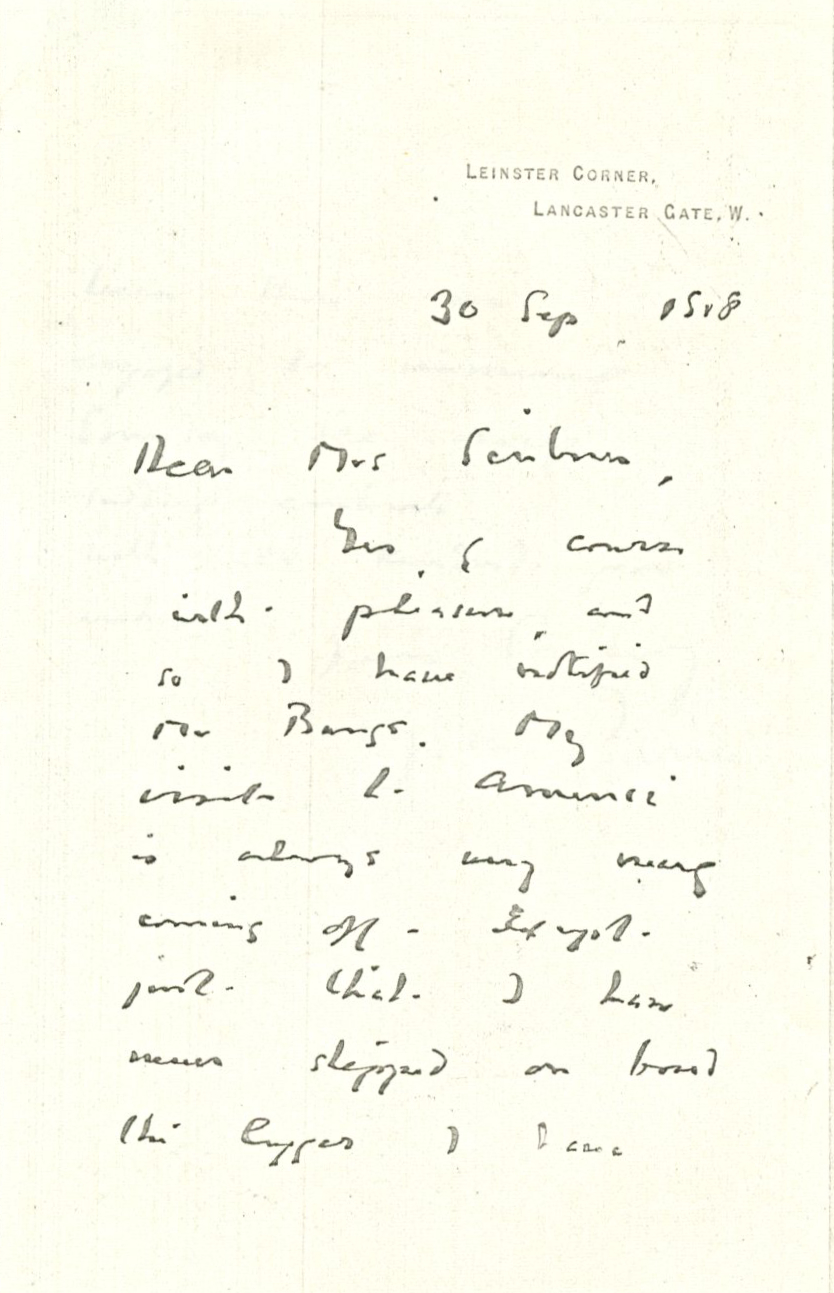 LEINSTER CORNER,
LANCASTER GATE, W.
30 Sep
Dear Mrs Scribner,
Yes of course
with pleasure, and
so I have notified
Mr Bangs. My
visit to America
is always very nearly
coming off - Except
just that I have
never stepped on board
the I have